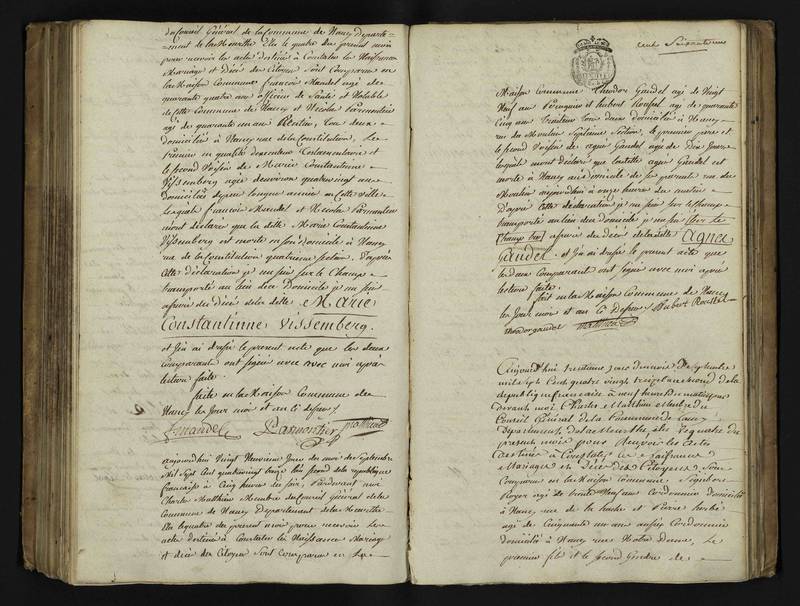 du Conseil Général de la Commune de Nancy departe=
=ment de la Meurthe Elu le quatre du present mois
pour recevoir les actes destinés à Constater les Naissances
Mariage et Décès des Citoyens Sont Comparus en
la Maison Commune françois Mandel agé de
quarante quatre ans officier de Santé et Notable
de cette Commune de Nancy et Nicolas Parmentier
agé de quarante un ans Rentier, tous deux
domiciliés à Nancy rue de la Constitution, Le
premier en qualité d'executeur testamentaire et
le second Voisin de Marie Constantinne
Vissemberg agée d'environ quatrevingt ans
Domiciliée depuis longues années en cette Ville
lesquels françois Mandel et Nicolas Parmentier
m'ont déclaré que la dite Marie Constantinne
Vissemberg est morte en son domicile à Nancy
rue de la Constitution quatrieme section. D'après
cette déclaration je me suis sur le Champ
transporté au lieu dudit Domicile je me suis
assuré du Décès de la ditte Marie
Constantinne Vissemberg.
et J'en ai dressé le present acte que les deux
Comparants ont signé avec moi après
lecture faite.
faite en la Maison Commune de
Nancy les Jour mois et an ci dessus
fs mandel Parmentier Matthieu
aujourd'hui Vingt Neuvieme Jour du mois de Septembre
Mil Sept Cent quatrevingt treize l'an second de la republique
françaises à Cinq heures du soir, Pardevant moi
Charles Matthieu Membre du Conseil Général de la
Commune de Nancy Departement de la Meurthe
Elu le quatre du present mois pour recevoir les
actes destinés à Constater les Naissances Mariage
et décès des Citoyens Sont Comparus en la
cent Soixante
Maison Commune Theodore Gandel agé de Vingt
Neuf ans et hubert agé de quarante
Cinq ans traiteur tous deux domiciliés à Nancy
rue du Moulin Septieme Section, le premier pere et
le second Voisin de agnes Gandel agée de
lesquels m'ont déclaré que la dite agnes Gandel est
morte à Nancy au domicile de son pere rue du
Moulin aujourd'hui à onze heures du matin
D'après Cette déclaration je me suis sur le champ
transporté au lieu du domicile je me suis sur le
champ assuré du décès de la ditte Agnes
Gandel. et J'en ai dressé le present acte que
les deux Comparants ont signé avec moi après
lecture faite.
fait en la Maison Commune de Nancy
les Jour mois et an ci Dessus Hubert
theodorgandel Matthieu
Aujourd'hui trentieme jour du mois de Septembre
mil sept Cent quatre vingt treize l'an second de la
republique francaise à neuf heures du matin par
devant moi Charles Matthieu membre du
Conseil Général de la Commune de Nancy
Département de la Meurthe élu le quatre du
present mois pour Recevoir les actes
destinés à Constater les Naissances
Mariages et Décès des Citoyens Sont
Comparus en la Maison Commune
Royer agé de trente neuf ans Cordonnier domicilié
à Nancy, rue de la et Pierre
agé de Cinquante un ans aussi Cordonnier
domicilié à Nancy rue Notre Dame, Le
premier fils et le second Gendre de